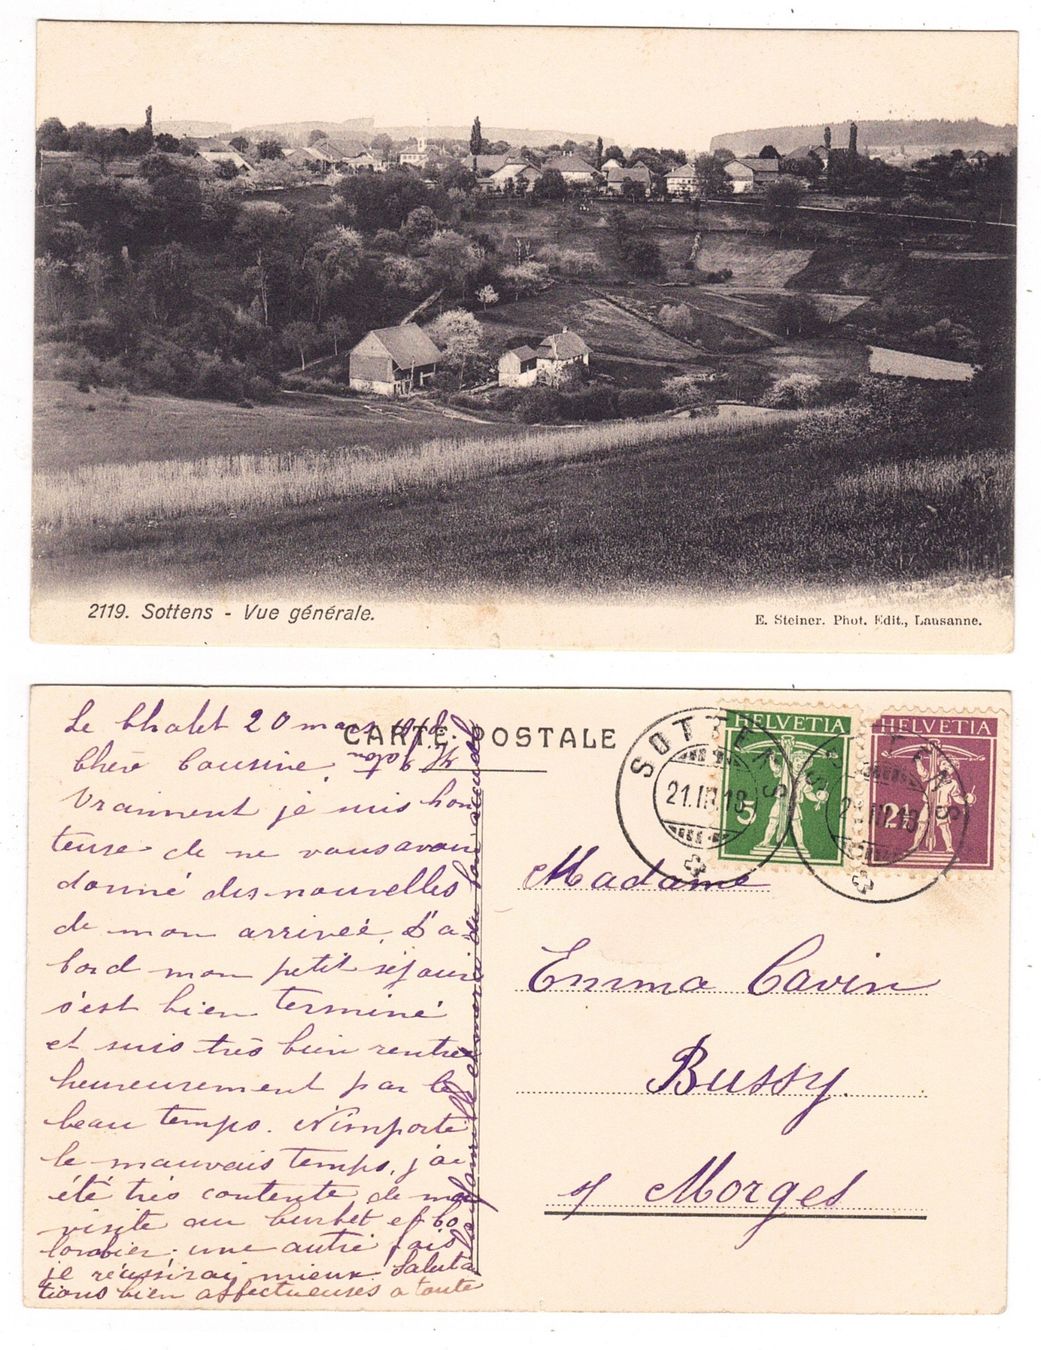 2119. Sottens - Vue générale.
E. Steiner. Phot. Edit., Lausanne.
CARTE POSTALE
SOTTENS
21.III.18
HELVETIA
5
SOTTENS
21.III.18
HELVETIA
2½
Le Chalet 20 mars
Chère Cousine,
Vraiment je suis hon
teuse de ne vous avoir
donné des nouvelles
de mon arrivée, D'a-
bord mon petit séjour
s'est bien terminé
et suis très bien rentrée
heureusement par le
beau temps. N'importe
le mauvais temps, j'ai
été très contente de ma
visite au
une autre fois
je réussirai mieux. Saluta
tions bien affectueuses à toute
la famille
Madame
Emma Cavin
Bussy.
s/ Morges